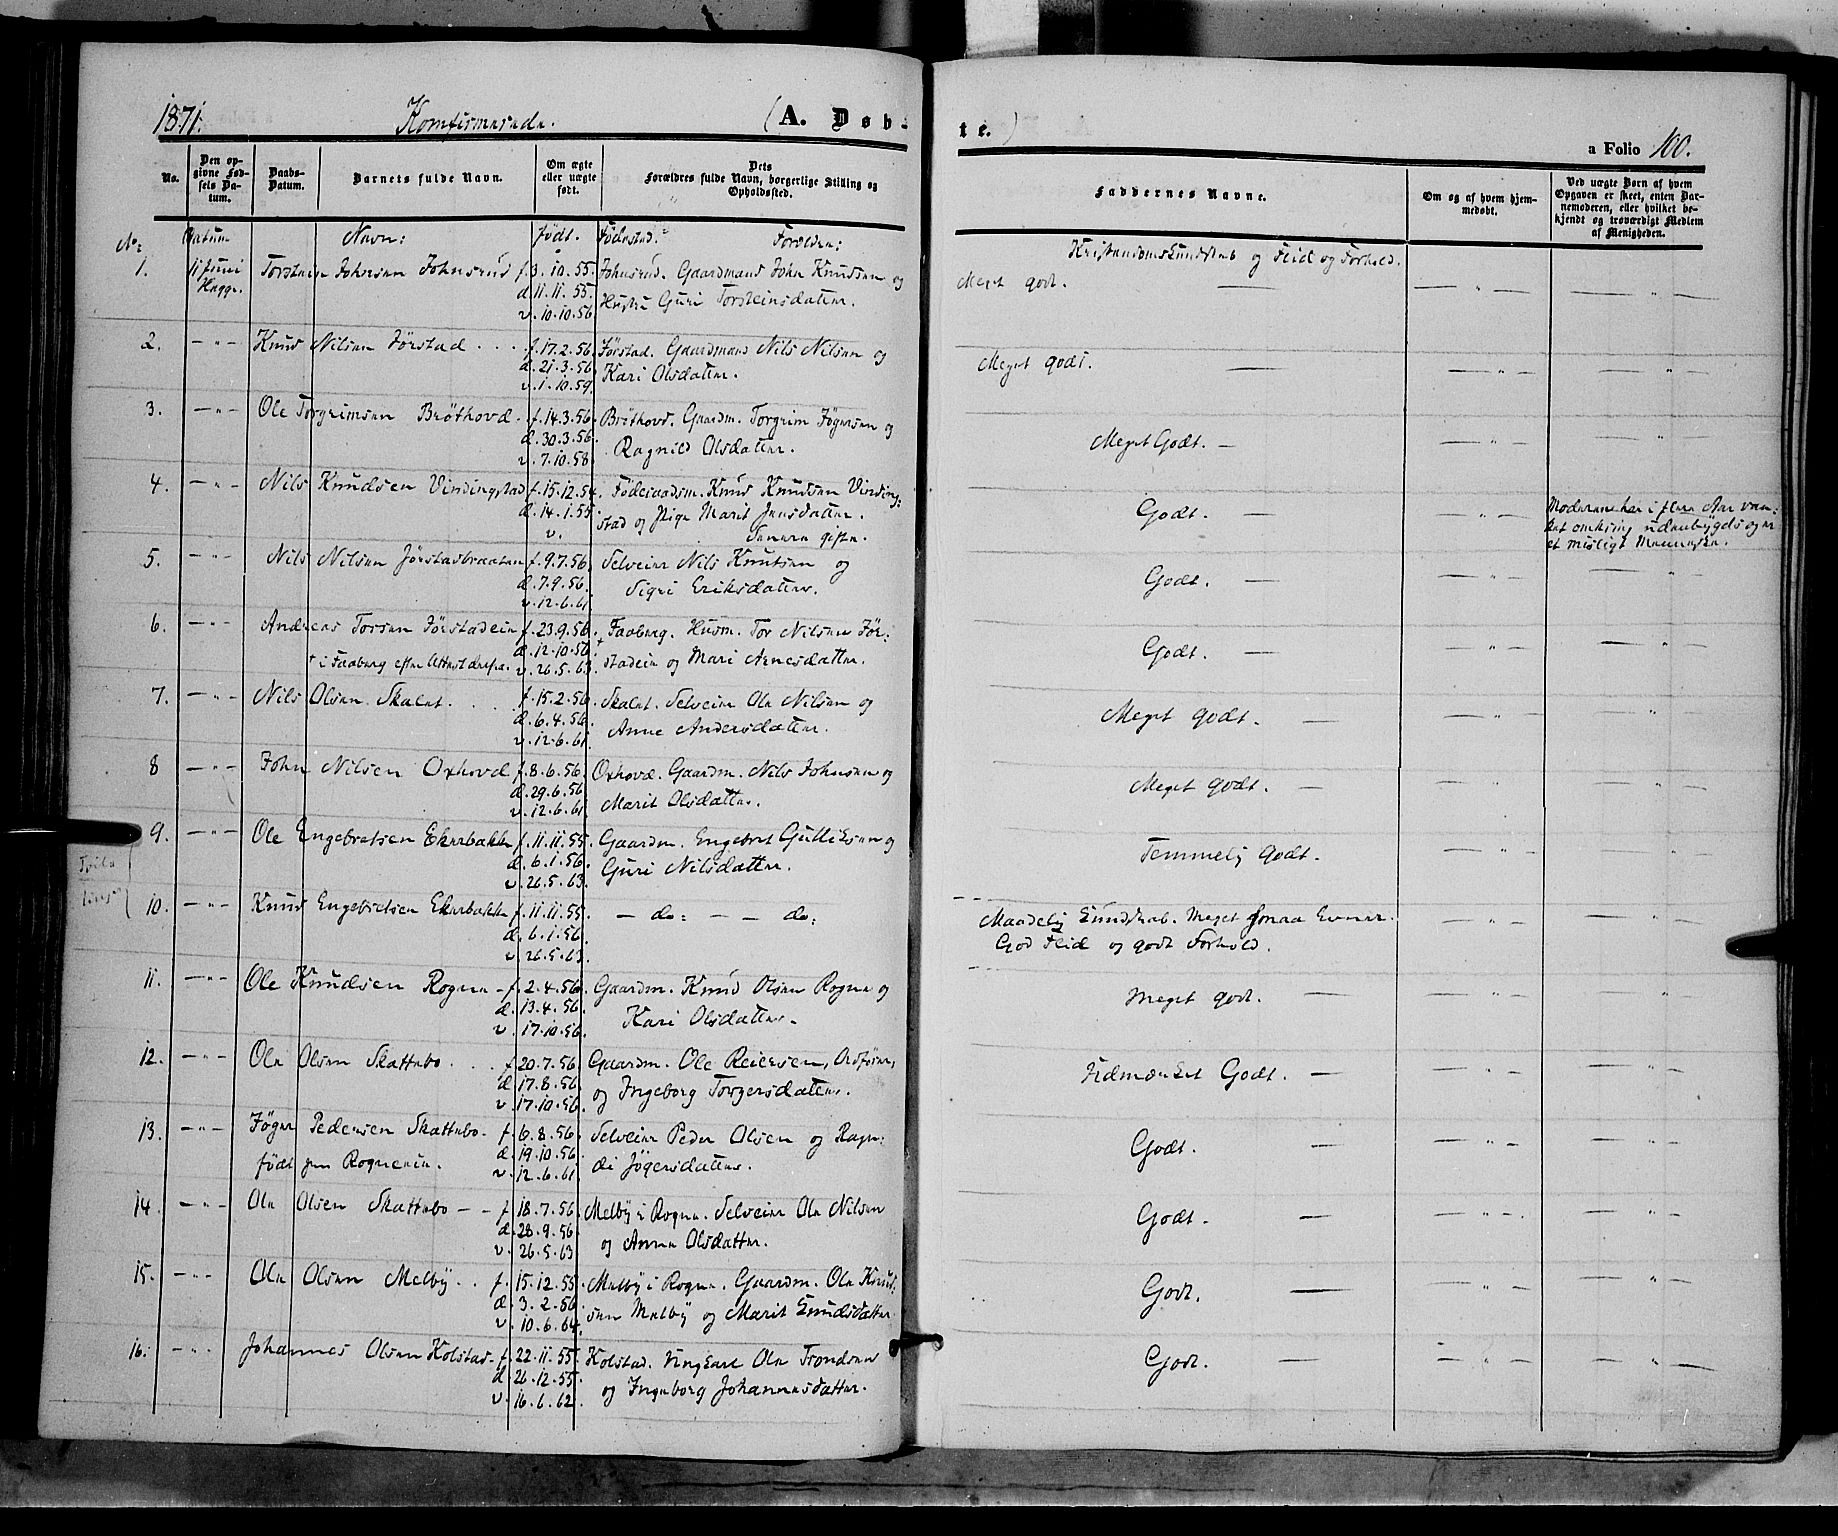 1871. Konfirmerede. (A. Døb-
te.) a Folio 100.
No. Den opgivne Fødsels Datum. Daabs-Datum. Barnets fulde Navn. Om ægte eller uægte født. Dets Forældres fulde Navn, borgerlige Stilling og Opholdssted.
Faddernes Navne. Om og af hvem hjemmedøbt. Ved uægte Børn af hvem Opgaven er skeet, enten Barnemoderen, eller hvilket bekjendt og troværdigt Medlem af Menigheden.
No: Datum Navn: født. Fødested: Forældre:
Kristendomskundskab og Flid og Forhold.
1. 11 Juni Torstein Johnsen Johnsrud f. 3.10.55. Johnsrud. Gaardmand John Knudsen og Meget godt.
Hegge. d. 11.11.55. Hustru Guri Torsteinsdatter.
v. 10.10.56
2. — " — Knud Nilsen Jørstad . . . f. 17.2.56. Jørstad. Gaardmand Nils Nilsen og Meget godt.
d. 21.3.56. Kari Olsdatter.
v. 1.10.59.
3. — " — Ole Torgrimsen Brøthovd. f. 14.3.56. Brøthovd. Gaardm. Torgrim Jøgersen og Meget Godt. —
d. 30.3.56. Ragnild Olsdatter.
v. 7.10.58.
4. — " — Nils Knudsen Vindingstad f. 15.12.54. Føderaadsm. Knud Knudsen Vinding: Godt. — Moderen har i flere Aar van:
d. 14.1.55. stad og Pige Marit Jensdatter. ket omkring udenbygds og er
v. Senere gifte. et misligt Menneske.
5. — " — Nils Nilsen Jørstadbraaten f. 9.7.56. Selveier Nils Knutsen og Godt. —
d. 7.9.56. Sigri Eriksdatter.
v. 12.6.61.
6. — " — Andreas Torsen Jørstadeie f. 23.9.56. + Faaberg. Husm. Tor Nilsen Jør: Godt. —
d. 12.10.56. stadeie og Mari Arnesdatter.
+ i Faaberg efter Attest derfra. v. 26.5.63.
7. — " — Nils Olsen Skalet . . . f. 15.2.56. Skalet. Selveier Ole Nilsen og Meget godt. —
d. 6.4.56. Anne Andersdatter.
v. 12.6.61.
8 — " — John Nilsen Oxhovd f. 8.6.56. Oxhovd. Gaardm. Nils Johnsen og Meget godt. —
d. 29.6.56 Marit Olsdatter.
v. 12.6.61.
9. — " — Ole Engebretsen Ekerbakke f. 11.11.55. Gaardm. Engebret Gulliksen og Temmelig Godt.
d. 6.1.56. Guri Nilsdatter.
v. 26.5.63.
10. — " — Knud Engebretsen Ekerbakke f. 11.11.55. — do: — — do: Maadelig Kundskab. Meget smaa Evner.
d. 6.1.56. God Flid og godt Forhold.
v. 26.5.63.
11. — " — Ole Knudsen Rogne — f. 2.4.56. Gaardm. Knud Olsen Rogne og Meget godt. —
d. 13.4.56 Kari Olsdatter.
v. 17.10.56.
12. — " — Ole Olsen Skattebo . . . f. 20.7.56. Gaardm. Ole Reiersen, Ordfører, Udmærket Godt. —
d. 17.8.56. og Ingeborg Torgersdatter.
v. 17.10.56.
13. — " — Jøger Pedersen Skattebo. f. 6.8.56. Selveier Peder Olsen og Ragn: Godt. —
født paa Rogneeie. d. 19.10.56. di Jøgersdatter.
v. 12.6.61.
14. — " — Ole Olsen Skattebo — — f. 18.7.56. Melby i Rogne. Selveier Ole Nilsen Godt. —
d. 28.9.56. og Anne Olsdatter.
v. 26.5.63
15. — " — Ole Olsen Melby . . f. 15.12.55. Melby i Rogne. Gaardm. Ole Knud: Godt. —
d. 3.2.56. sen Melby og Marit Knudsdatter
v. 10.6.64.
16. — " — Johannes Olsen Kolstad. f. 22.11.55. Kolstad. Ungkarl Ole Trondsen Godt. —
d. 26.12.55. og Ingeborg Johannesdatter.
v. 16.6.62.